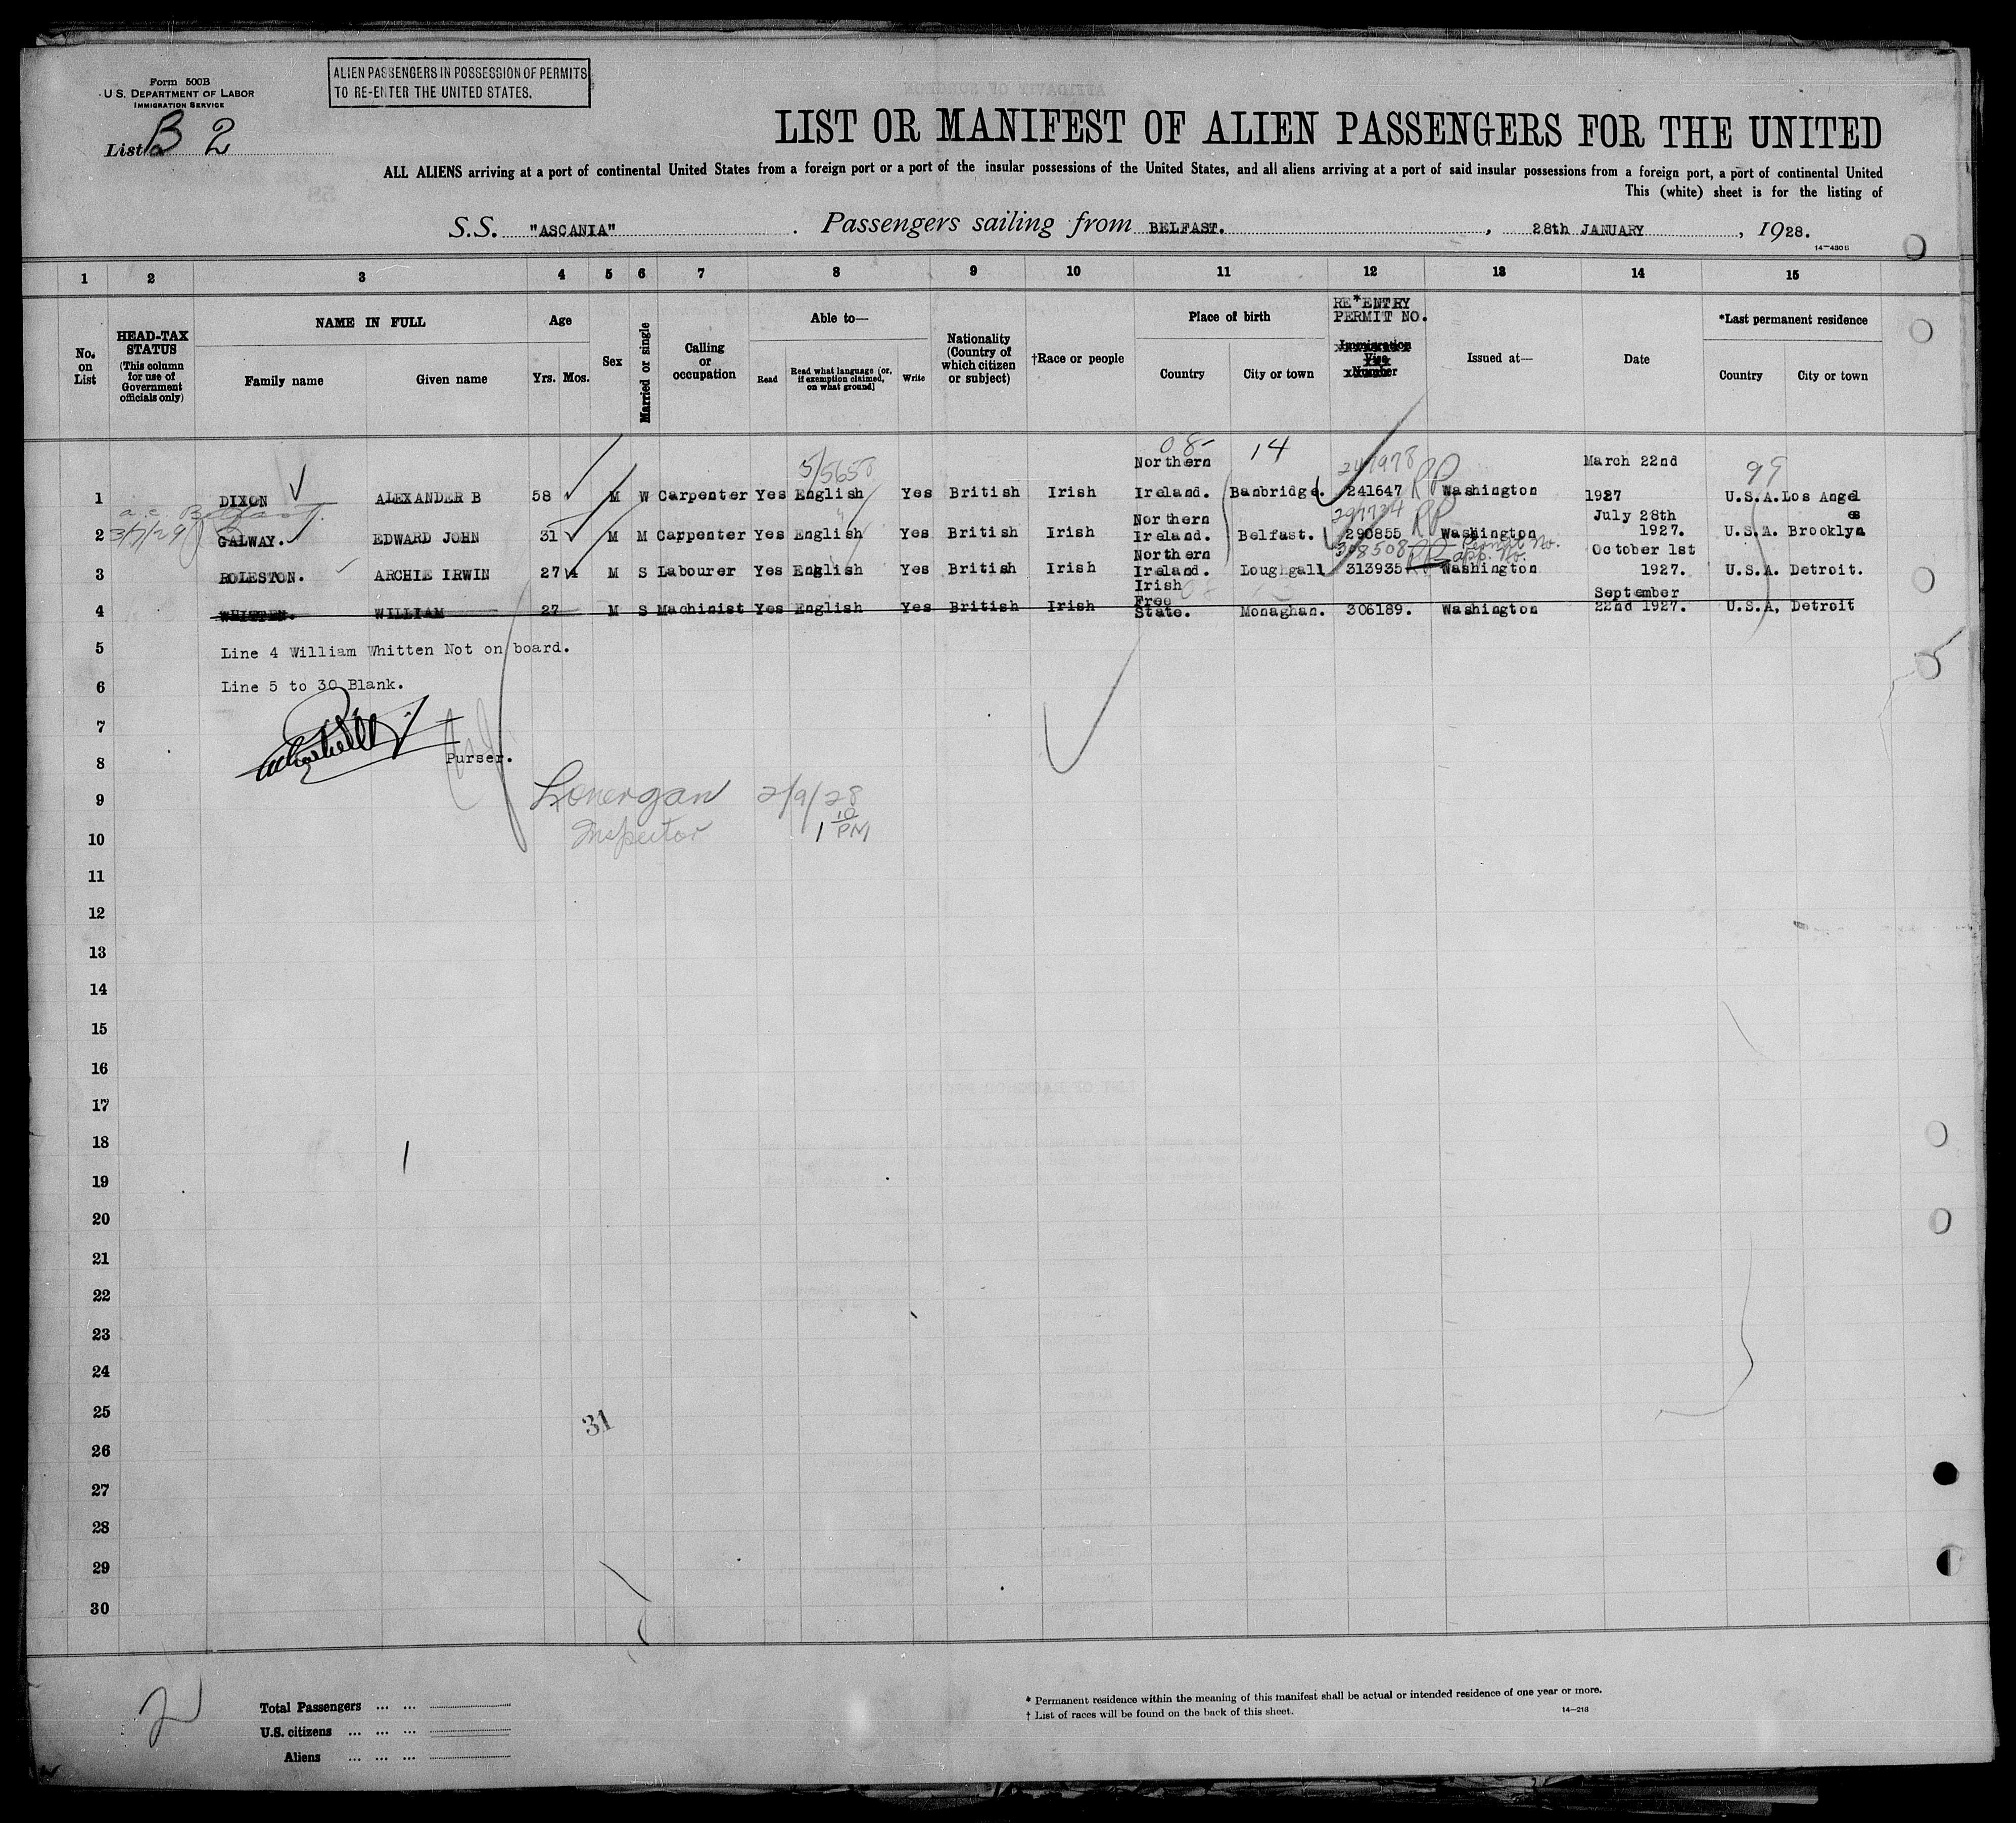 Form 500B
U.S. DEPARTMENT OF LABOR
IMMIGRATION SERVICE
ALIEN PASSENGERS IN POSSESSION OF PERMITS
TO RE-ENTER THE UNITED STATES.
List B 2
LIST OR MANIFEST OF ALIEN PASSENGERS FOR THE UNITED
ALL ALIENS arriving at a port of continental United States from a foreign port or a port of the insular possessions of the United States, and all aliens arriving at a port of said insular possessions from a foreign port, a port of continental United
This (white) sheet is for the listing of
S.S. "ASCANIA". Passengers sailing from BELFAST., 28th JANUARY, 1928.
14-430B
1 2 3 4 5 6 7 8 9 10 11 12 13 14 15
No. on List
HEAD-TAX STATUS (This column for use of Government officials only)
NAME IN FULL
Family name Given name
Age
Yrs. Mos.
Sex
Married or single
Calling or occupation
Able to—
Read Read what language (or, if exemption claimed, on what ground) Write
Nationality (Country of which citizen or subject)
†Race or people
Place of birth
Country City or town
RE*ENTRY PERMIT NO.
Immigration Visa Number
Issued at—
Date
*Last permanent residence
Country City or town
08- 14 99
5/5658 247978 RP
1 DIXON ALEXANDER B 58 M W Carpenter Yes English Yes British Irish Northern Ireland. Banbridge. 241647 Washington March 22nd 1927 U.S.A. Los Angeles
a.c. Belfast.
3/7/29
2 GALWAY. EDWARD JOHN 31 M M Carpenter Yes English Yes British Irish Northern Ireland. Belfast. 290855 RP Washington July 28th 1927. U.S.A. Brooklyn
308508 RP Permit No.
app. No.
3 ROLESTON. ARCHIE IRWIN 27 M S Labourer Yes English Yes British Irish Northern Ireland. Loughgall 313935 Washington October 1st 1927. U.S.A. Detroit.
4 WHITTEN. WILLIAM 27 M S Machinist Yes English Yes British Irish Irish Free State. Monaghan. 306189. Washington September 22nd 1927. U.S.A, Detroit
5 Line 4 William Whitten Not on board.
6 Line 5 to 30 Blank.
7
8 Purser.
9 Lonergan 2/9/28
10 Inspector 1 10 PM
11
12
13
14
15
16
17
18
19
20
21
22
23
24
25
31
26
27
28
29
30
2
Total Passengers ... ...
U.S. citizens ... ... ...
Aliens ... ... ...
* Permanent residence within the meaning of this manifest shall be actual or intended residence of one year or more.
† List of races will be found on the back of this sheet.
14-218